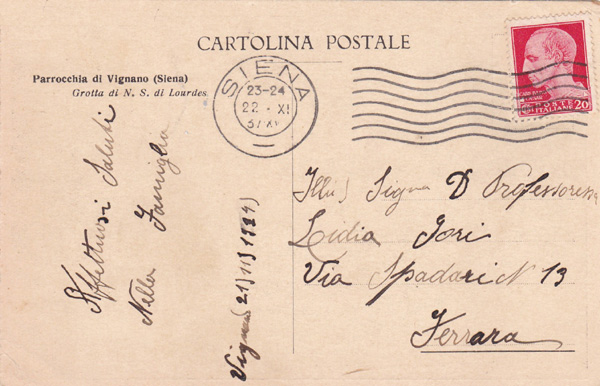 CARTOLINA POSTALE
Parrocchia di Vignano (Siena)
Grotta di N. S. di Lourdes
SIENA
23-24
22 · XI
37 XV
POSTE
ITALIANE 20
Affettuosi Saluti
Nella Famiglia
Illu) Signa D Professoressa
Lidia Jori
Via Spadari N 13
Ferrara